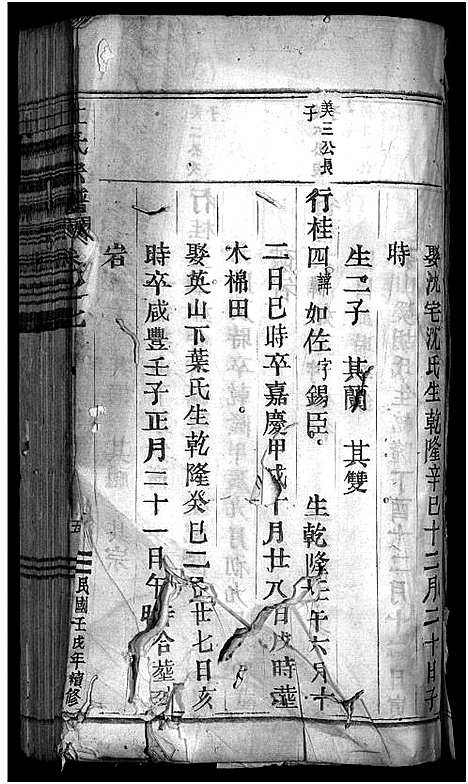 娶沈宅沈氏生乾隆辛巳十二月二十日子
時
生二子 其蘭 其雙
美三公長子 行桂四諱如佐字錫臣 生乾隆壬午六月十
二日巳時卒嘉慶甲戌十月廿八日戌時葬
木棉田
娶英山下葉氏生乾隆癸巳二月廿七日亥
時卒咸豐壬子正月二十一日午時合葬
岩
氏宗譜
五
民國壬戌年續修